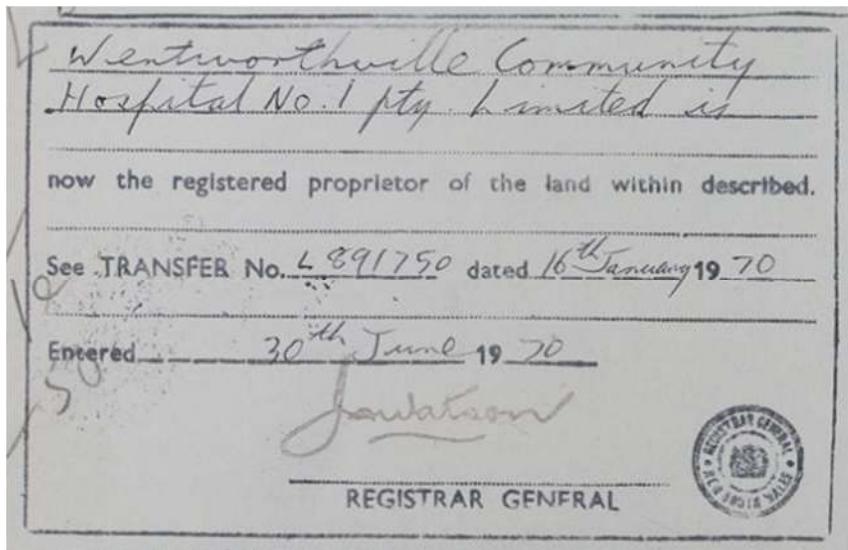 Wentworthville Community
Hospital No. 1 pty. Limited is
now the registered proprietor of the land within described.
See TRANSFER No. L 891750 dated 16th January 1970
Entered 30th June 1970
Jawatson
REGISTRAR GENERAL
REGISTRAR GENERAL
NEW SOUTH WALES